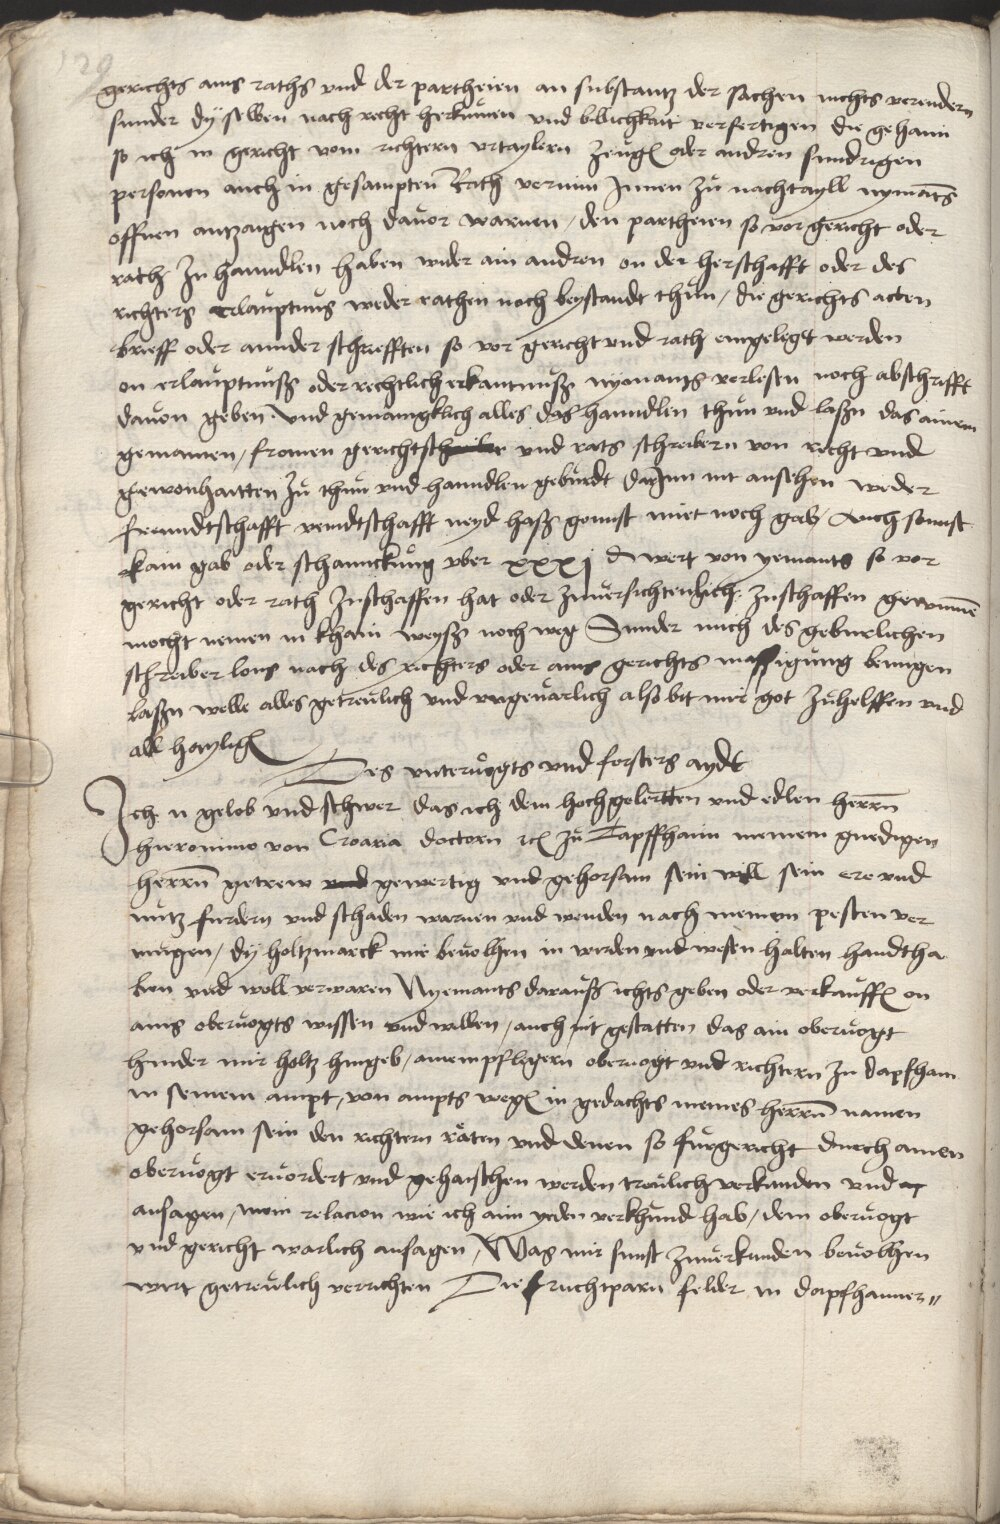 129
gerichts ains raths vnd der partheien an substantz der sachen nichts verendern
sunder dy selben nach recht herkumen vnd billichkait verfertigen die gehaim
so ich in gericht vom richtern vrtaylern zeugen oder andren sundrigen
personen auch in gesampten Rath vernim Innen zu nachtayll nymants
offnen antzaigen noch dauor warnen / den partheien so vor gericht oder
rath zu hanndlen haben wider ain andren on der herschafft oder des
richters erlauptnus weder rathen noch beystandt thun / die gerichts acten
brieff oder annder schriefften so vor gericht vnd rath eingelegt werden
on erlauptnuss oder rechtlich erkantnuss nymants verlesen noch abschrifft
dauon geben vnd gemaingklich alles das hanndlen thun vnd lassen das ainem
gemainen / fromen gerichtschreiber vnd rats schreibern von recht vnd
gewonhaitten zu thun vnd hanndlen geburdt darInn nit ansehen weder
freundtschafft veindtschafft neyd hass gonnst miet noch gab / Auch sonnst
kain gab oder schannckung vber xxxj d wert von yemants so vor
gericht oder rath zuschaffen hat oder zuuersichtenlich zuschaffen gewinnen
mocht nemen in khain weyss noch weg Sunder mich des geburlichen
schreiber lons nach des richters oder ains gerichts messigung benugen
lassen welle alles getreulich vnd vngeuarlich also bit mir got zuhelffen vnd
all hayligen
Des vnteruogts vnd forsters aydt
Ich n gelob vnd schwer das ich dem hochgelertten vnd edlen herrn
hieronimo von Croaria doctorn etc zu Tapffhaim meinem gnedigen
herrn getrew vnd gewertig vnd gehorsam sein will sein ere vnd
nutz furdern vnd schaden warnen vnd wenden nach meinem pesten ver
mugen / dy holtzmarck mir beuolhen in wirden vnd wesen halten handtha
ben vnd woll verwaren Nyemants darauss ichts geben oder verkauffen on
ains oberuogts wissen vnd willen / auch nit gestatten das ain oberuogt
hinder mir holtz hingeb / ainem pflegern oberuogt vnd richtern zu dapfham
in seinem ampt / von ampts wegen in gedachts meines herrn namen
gehorsam sein den richtern räten vnd denen so fur gericht durch ainen
oberuogt eruordert vnd gehaischen werden treulich verkunden vnd
ansagen / mein relacion wie ich aim yeden verkhund hab / dem oberuogt
vnd gericht warlich ansagen / Was mir sunst zuuerkunden beuolhen
wirt getreulich verrichten Die fruchtparn felder in dapfhaimer //